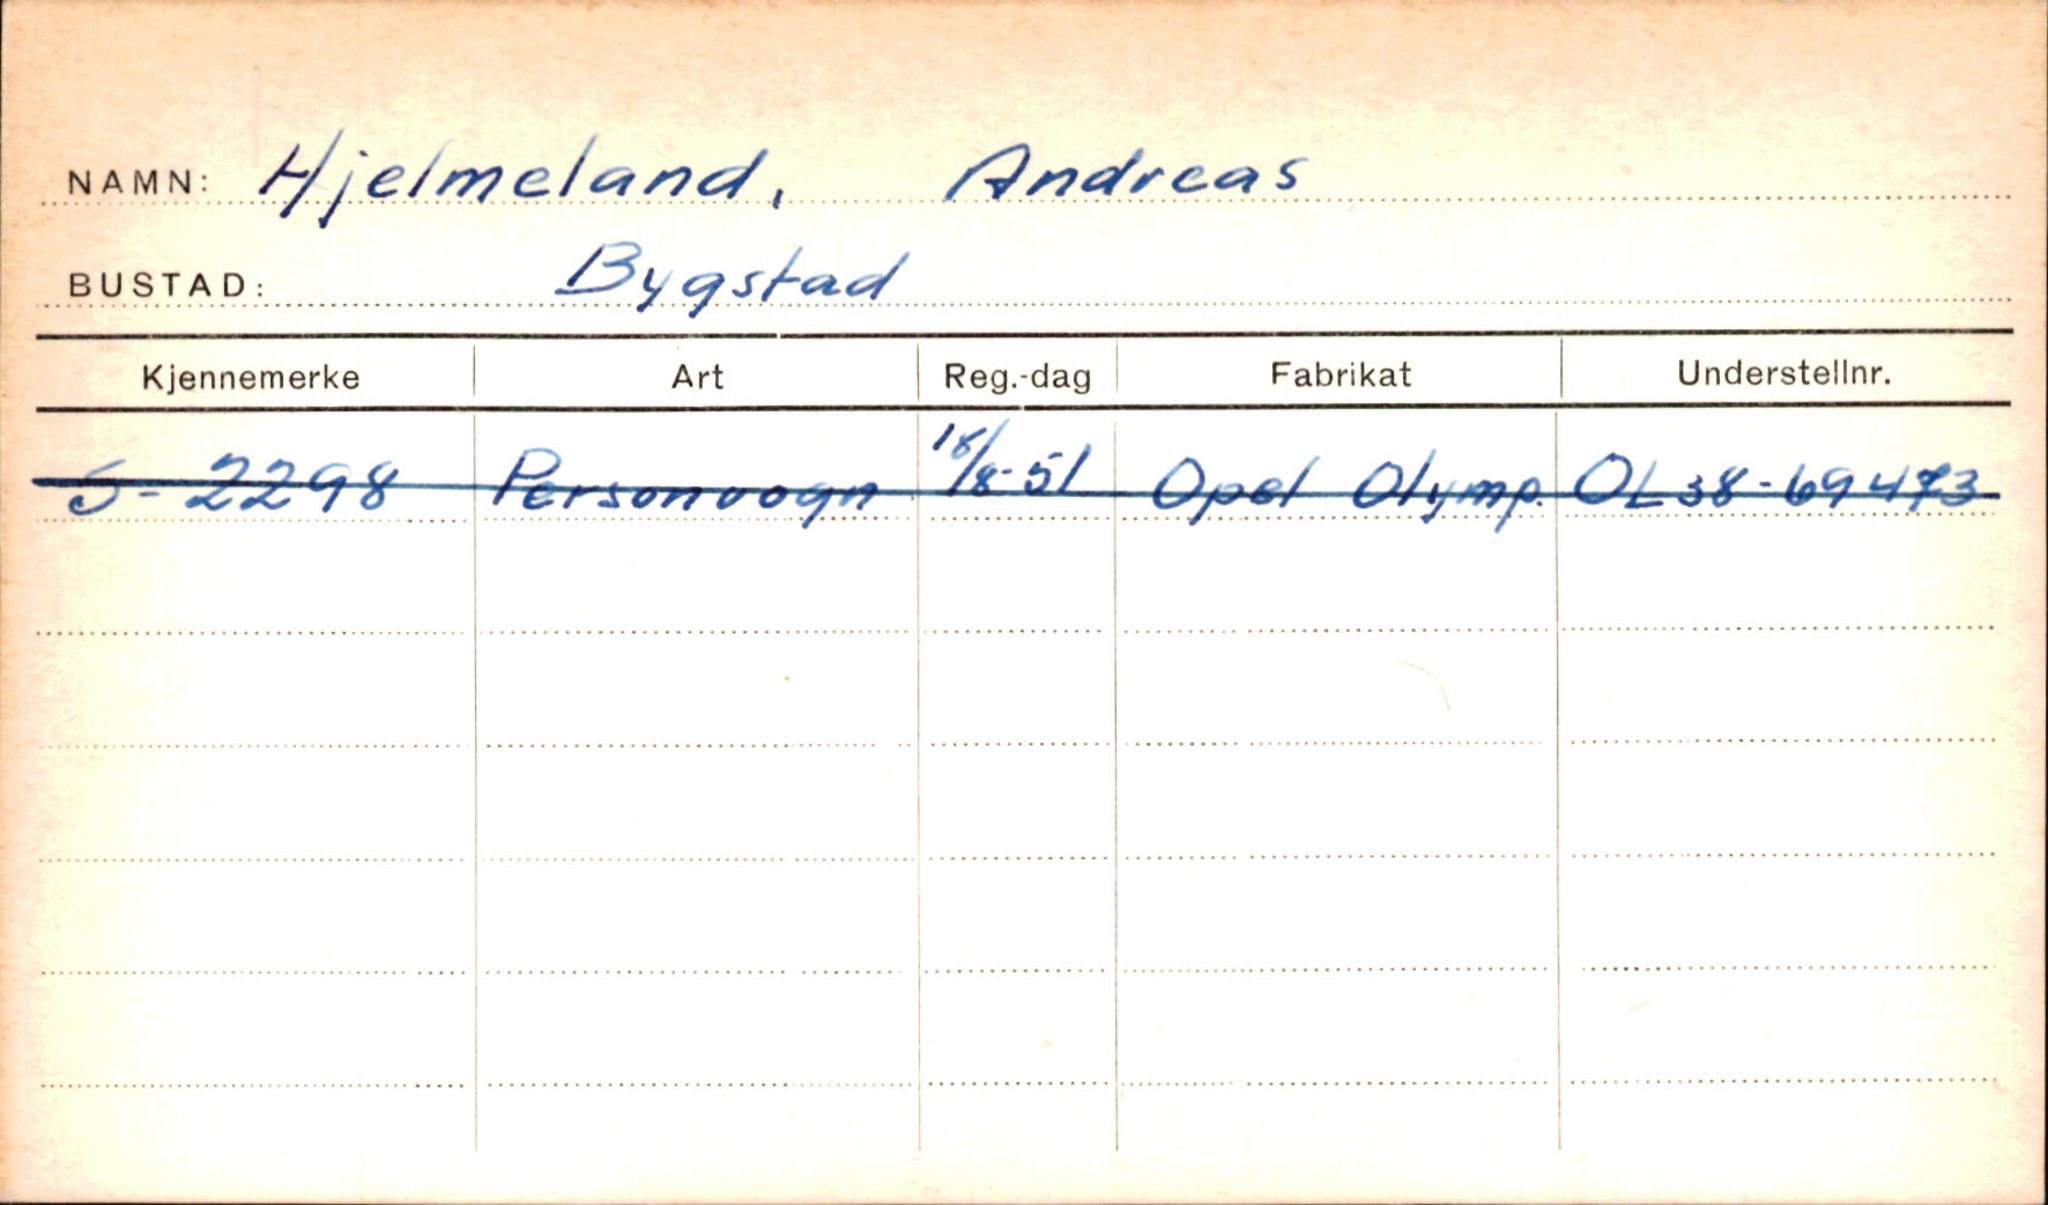 NAMN: Hjelmeland, Andreas
BUSTAD: Bygstad
Kjennemerke Art Reg.-dag Fabrikat Understellnr.
S-2298 Personvogn 18/8-51 Opel Olymp. OL38-69473